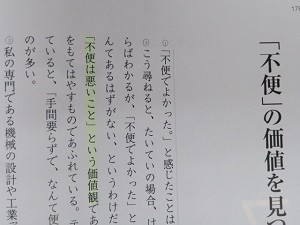 176
「不便」の価値を見つ
①「不便でよかった。」と感じたことは
②こう尋ねると、たいていの場合、け
らばわかるが、「不便でよかった」と
んてあるはずがない、というわけだ
「不便は悪いこと」という価値観であ
をもてはやすものであふれている。テ
ていると、「手間要らずで、なんて便
のが多い。
②私の専門である機械の設計や工業で